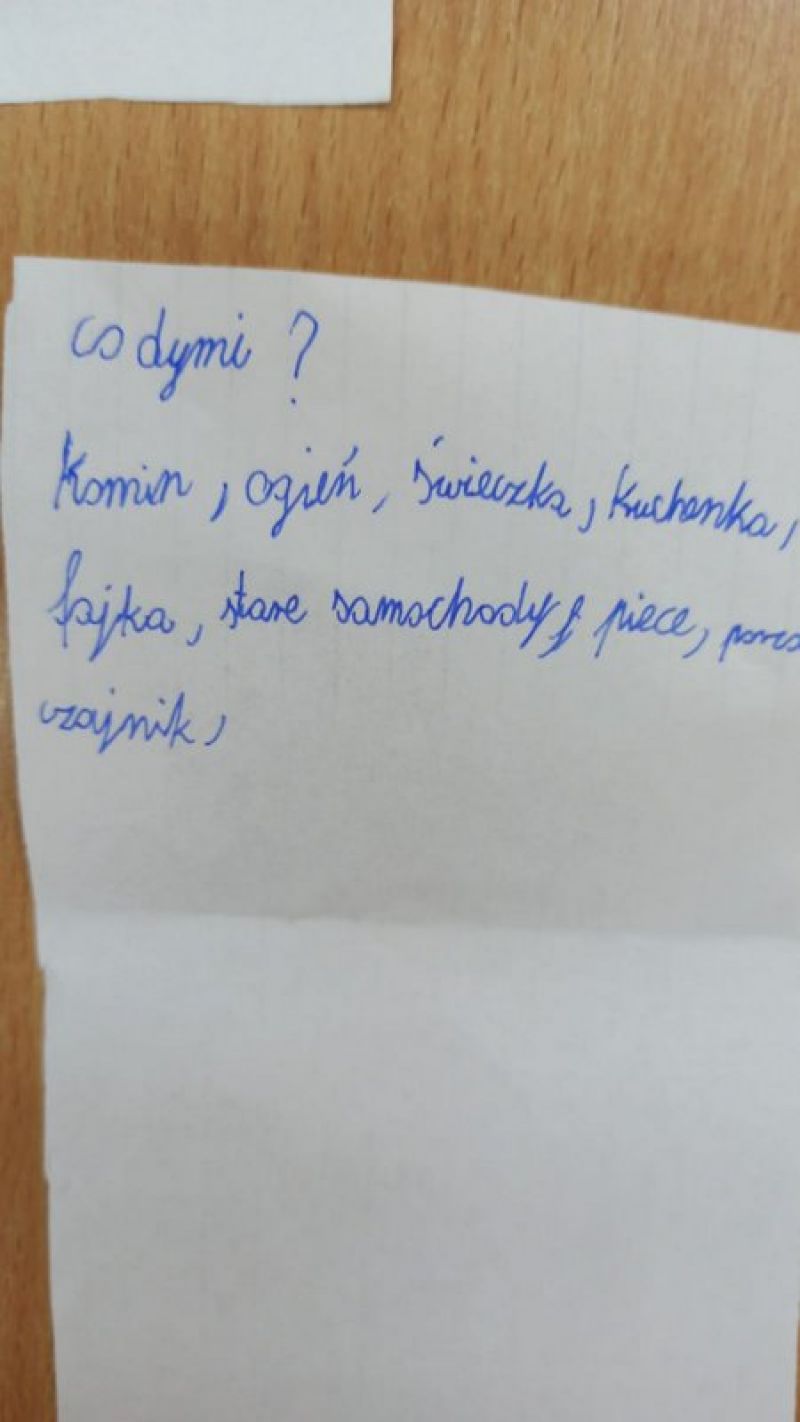 co dymi ?
Komin, ogień, świeczka, Kuchenka,
fajka, stare samochody, piece,
czajnik,